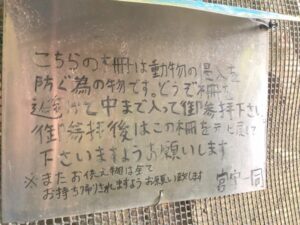 こちらの柵は動物の侵入を
防ぐ為の物です。どうぞ柵を
中まで入って御参拝下さい
御参拝後はこの柵を元に戻して
下さいますようお願いします
※またお供え物は全て
お持ち帰りされますようお願い致します
宮守一同